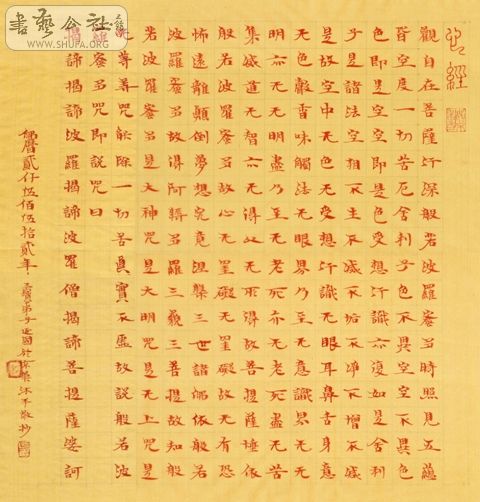 心經
觀自在菩薩行深般若波羅蜜多時照見五蘊
皆空度一切苦厄舍利子色不異空空不異色
色即是空空即是色受想行識亦復如是舍利
子是諸法空相不生不滅不垢不淨不增不減
是故空中无色无受想行識无眼耳鼻舌身意
无色聲香味觸法无眼界乃至无意識界无无
明亦无无明盡乃至无老死亦无老死盡无苦
集滅道无智亦无得以无所得故菩提薩埵依
般若波羅蜜多故心无罣礙无罣礙故无有恐
怖遠離顛倒夢想究竟涅槃三世諸佛依般若
波羅蜜多故得阿耨多羅三藐三菩提故知般
若波羅蜜多是大神咒是大明咒是无上咒是
无等等咒能除一切苦真實不虛故說般若波
羅蜜多咒即說咒曰
揭諦揭諦波羅揭諦波羅僧揭諦菩提薩婆訶
佛曆貳仟伍佰伍拾貳年 弟子 沐手敬抄
書藝公社
WWW.SHUFA.ORG